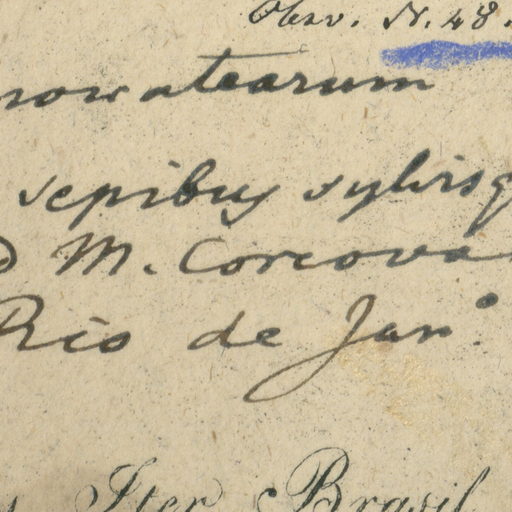 Obsv. N. 48.
nowatearum
sepibus sylvisq
M. Corcova
Rio de Jan°.
s Iter Brasil